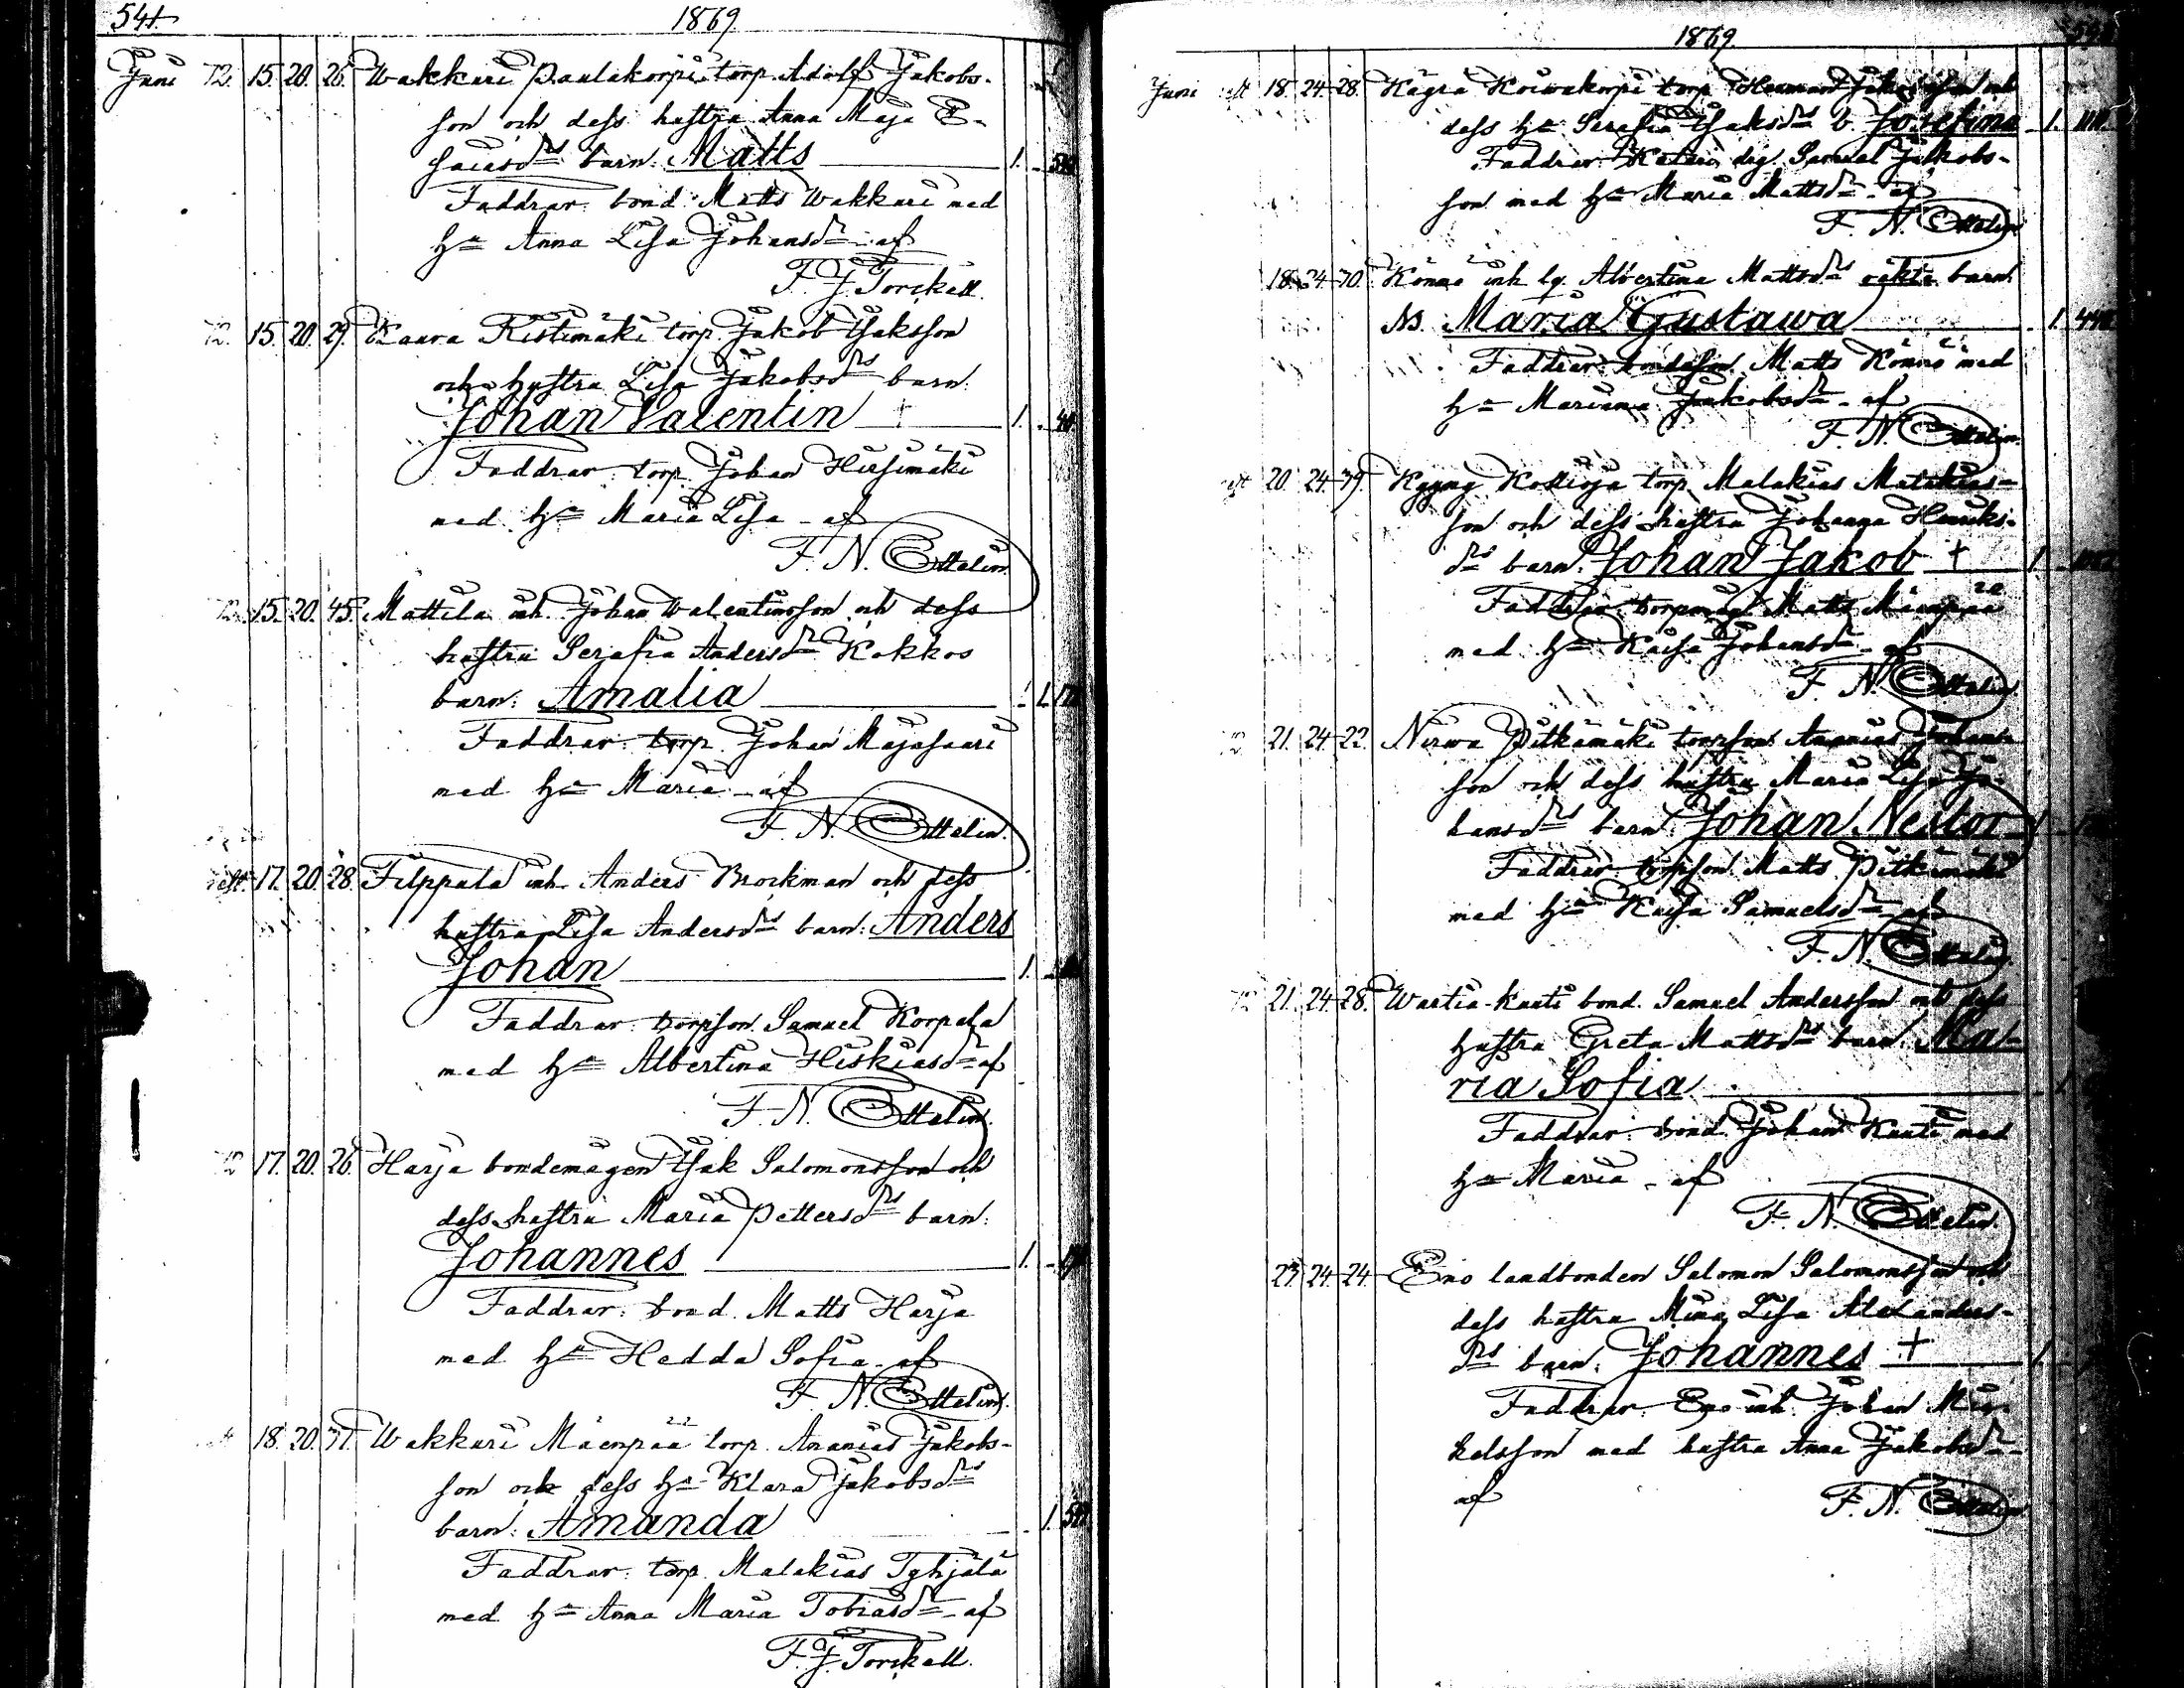 541.
1869.
Juni 12. 15. 20. 26. Wakkuri Paulakorpi torp. Adolf Jakobs-
son och dess hustru Anna Maja E-
saiasdrs barn: Matts 1.
Faddrar: bond. Matts Wakkuri med
ha Anna Lisa Johansdr af
F. J. Torckell.
12. 15. 20. 29. Ristimäki torp. Jakob Isaksson
och hustru Lisa Jakobsdrs barn:
Johan Valentin + 1.
Faddrar: torp. Johan Hirsimäki
med ha Maria Lisa - af
F. N. Ottelin.
12. 15. 20. 45. Mattila inh. Johan Walentinsson och dess
hustru Serafia Andersdr Kokkos
barn: Amalia 1.
Faddrar: torp. Johan Majasaari
med ha Maria - af
F. N. Ottelin.
eft. 17. 20. 28. Filppula inh. Anders Brockman och dess
hustru Lisa Andersdrs barn: Anders
Johan 1.
Faddrar: torpson Samuel Korpela
med ha Albertina Hiskiasdr af
F. N. Ottelin.
12 17. 20. 26. Harja bondemågen Isak Salomonsson och
dess hustru Maria Pettersdrs barn:
Johannes 1.
Faddrar: bond. Matts Harja
med ha Hedda Sofia - af
F. N. Ottelin.
18. 20. 31. Wakkuri Mäenpää torp. Ananias Jakobs-
son och dess ha Klara Jakobsdrs
barn: Amanda 1.
Faddrar: torp. Malakias Tyhjälä
med ha Anna Maria Tobiasdr - af
F. J. Torckell.
1869.
Juni eft 18. 24. 28. Kägrä Koiwakorpi torp. Herman Jakobsson och
dess ha Serafia Isaksdrs b. Josefina 1.
Faddrar: Kateri drg. Samuel Jakobs-
son med ha Maria Mattsdr - af
F. N. Ottelin.
18. 24. 30. Könnö inh. lg. Albertina Mattsdrs oäkta barn
No. Maria Gustawa 1.
Faddrar: bondeson Matts Könnö med
ha Mariana Jakobsdr - af
F. N. Ottelin.
eft 20. 24. 39. Kyyny torp. Malakias Malakias-
son och dess hustru Johanna Henriks-
drs barn: Johan Jakob + 1.
Faddrar: torpmåg Matts Mäenpää
med ha Kaisa Johansdr - af
F. N. Ottelin.
12 21. 24. 22. Nirwa Pitkämäki torpson Ananias Johans-
son och dess hustru Maria Lisa Jo-
hansdrs barn: Johan Nestor 1.
Faddrar: torpson Matts Pitkämäki
med ha Kaisa Samuelsdr af
F. N. Ottelin.
12 21. 24. 28. Wartia-Kauti bond. Samuel Andersson och dess
hustru Greta Mattsdrs barn: Ma-
ria Sofia
Faddrar: bond. Johan Kauti med
ha Maria - af
F. N. Ottelin.
23. 24. 24. Eno landbonden Salomon Salomonsson och
dess hustru Mina Lisa Alexanders-
drs barn: Johannes + 1.
Faddrar: Eno inh. Johan Mic-
kelsson med hustru Anna Jakobsdr -
af F. N. Ottelin